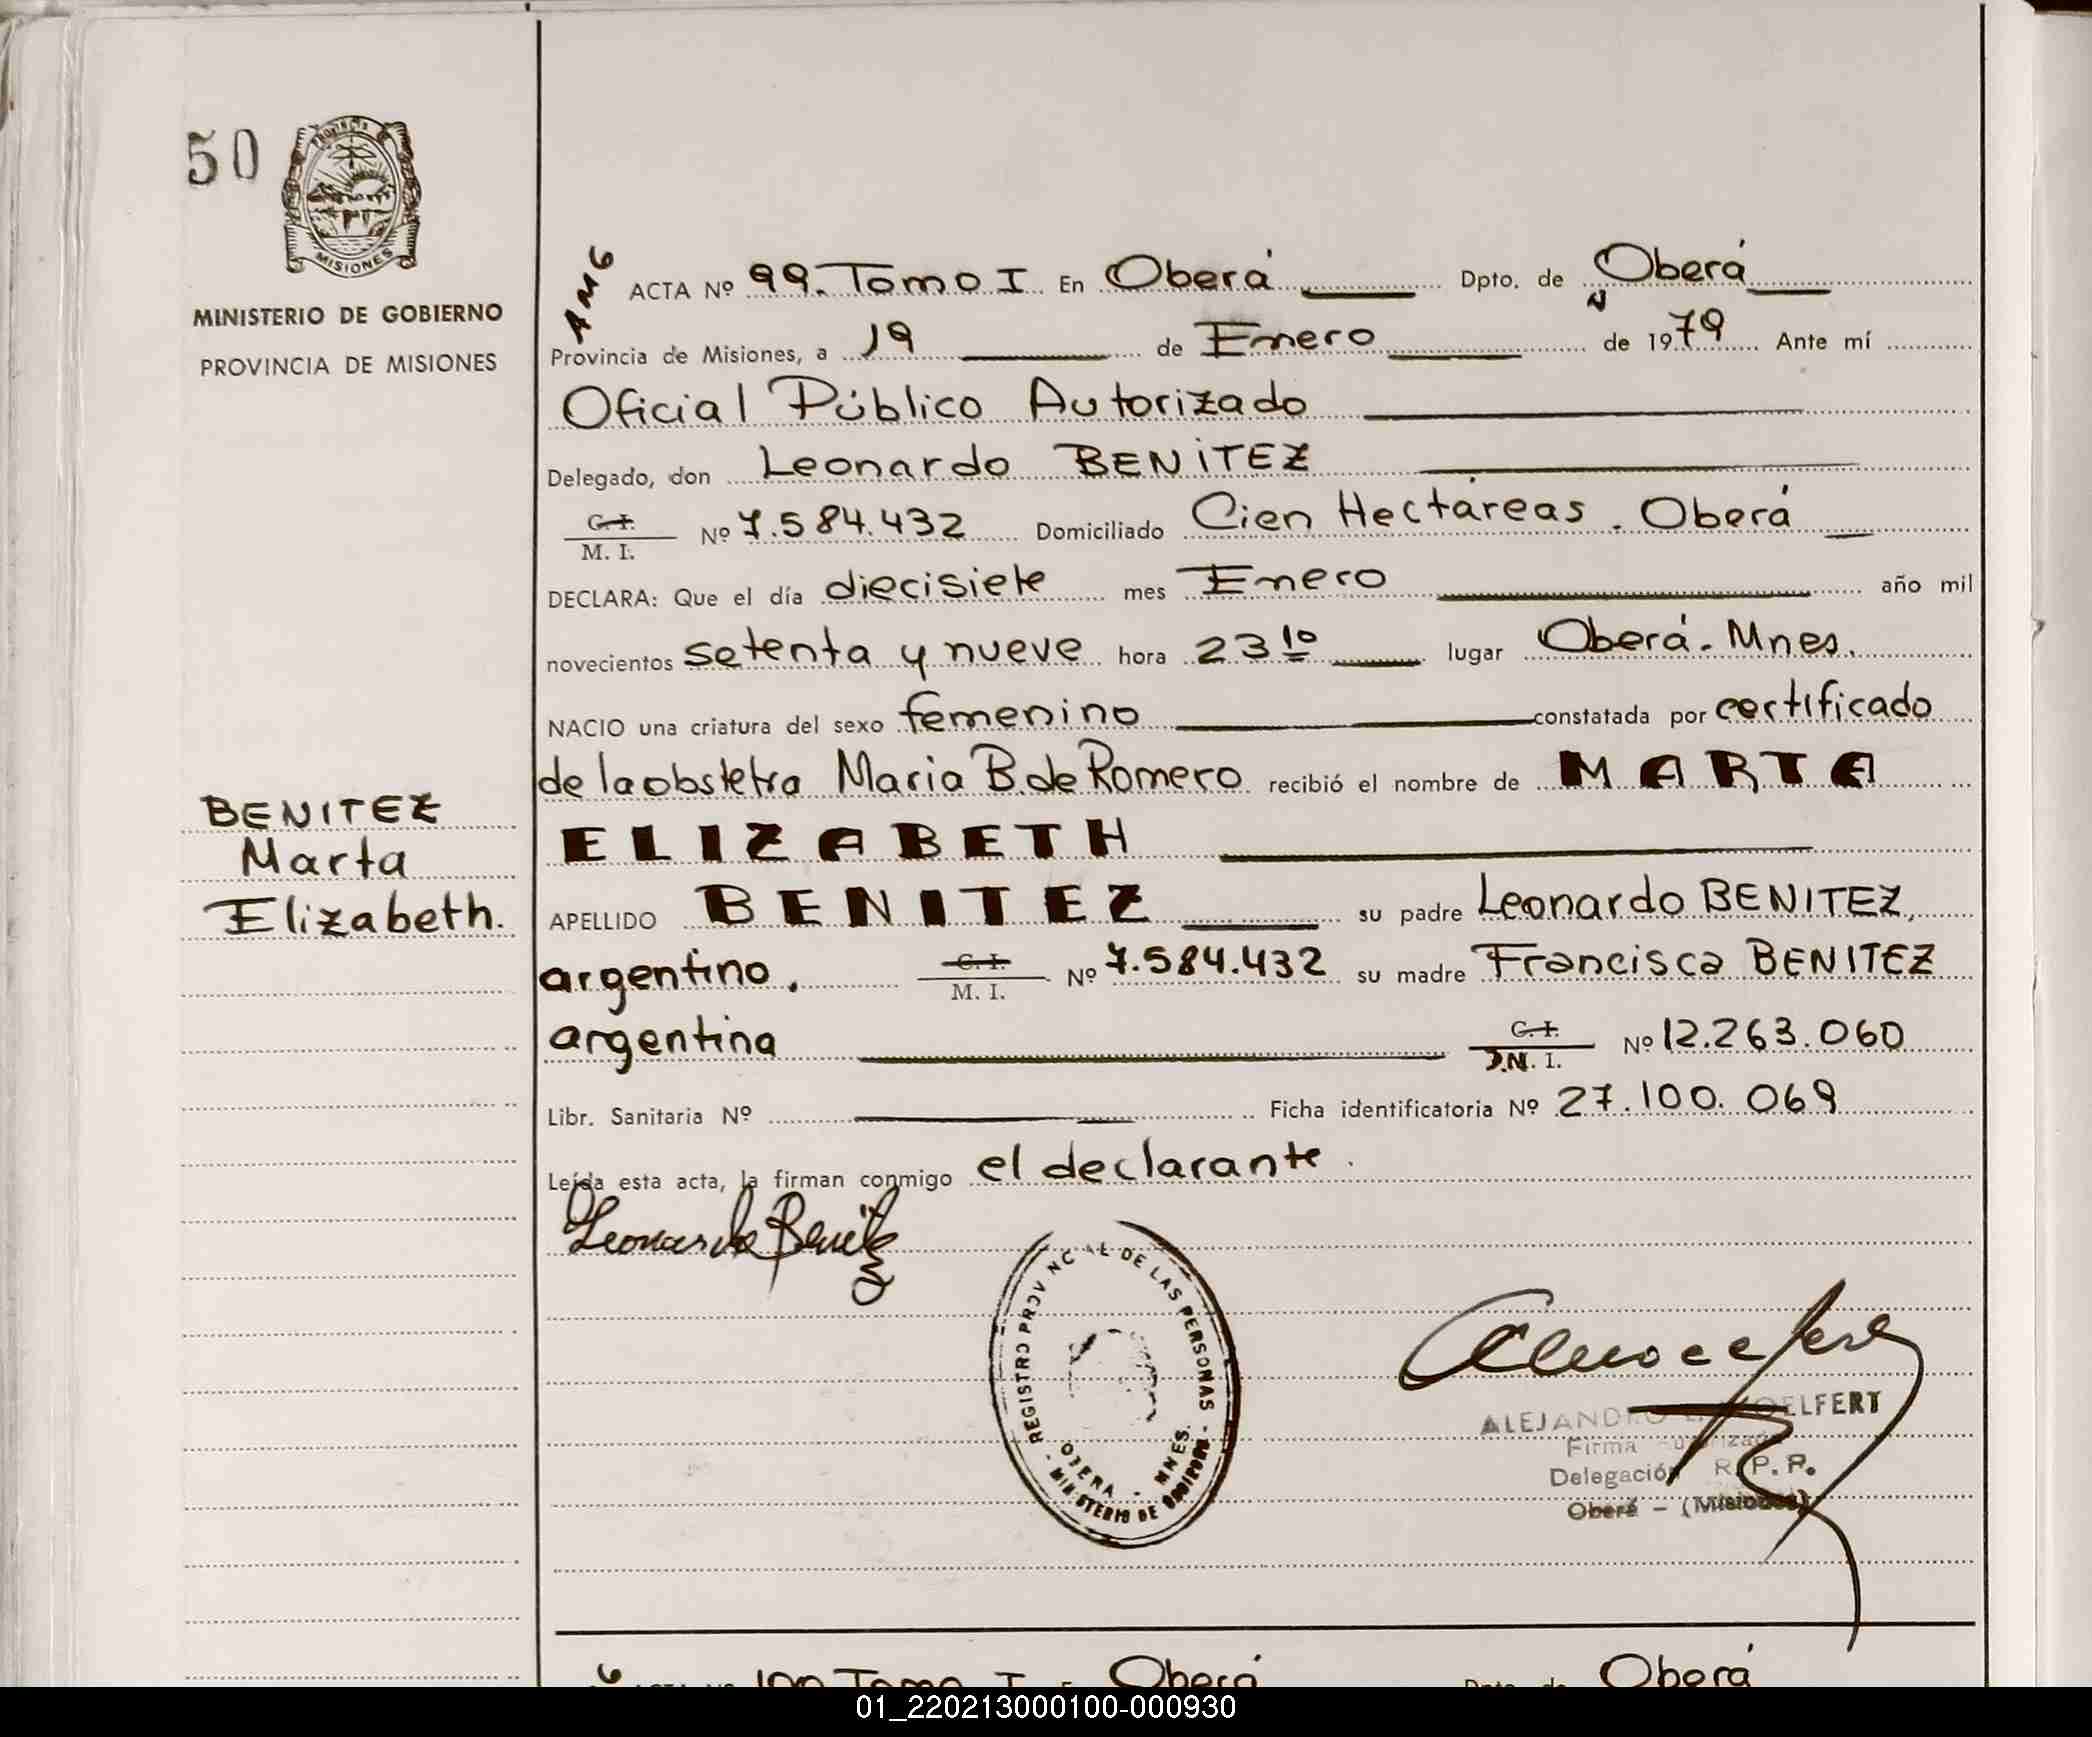 50
PROVINCIA
MISIONES
MINISTERIO DE GOBIERNO
PROVINCIA DE MISIONES
BENITEZ
Marta
Elizabeth.
ACTA Nº 99. Tomo I En Oberá Dpto. de Oberá
Provincia de Misiones, a 19 de Enero de 1979 Ante mí
Oficial Público Autorizado
Delegado, don Leonardo BENITEZ
C. I.
M. I. Nº 7.584.432 Domiciliado Cien Hectáreas. Oberá
DECLARA: Que el día diecisiete mes Enero año mil
novecientos setenta y nueve hora 23 10 lugar Oberá. Mnes.
NACIO una criatura del sexo femenino constatada por certificado
de la obstetra Maria B. de Romero recibió el nombre de MARTA
ELIZABETH
APELLIDO BENITEZ su padre Leonardo BENITEZ,
argentino. C. I. M. I. Nº 7.584.432 su madre Francisca BENITEZ
argentina C. I. D.N. I. Nº 12.263.060
Libr. Sanitaria Nº Ficha identificatoria Nº 27.100.069
Leída esta acta, la firman conmigo el declarante.
Leonardo Benitez
REGISTRO PROVINCIAL DE LAS PERSONAS
OBERA - MNES.
- MINISTERIO DE GOBIERNO -
ALEJANDRO OELFERT
Firma Autorizada
Delegación R. P. P.
Oberá - (Misiones)
ACTA Nº 100 Tomo I En Oberá Dpto. de Oberá
01_220213000100-000930